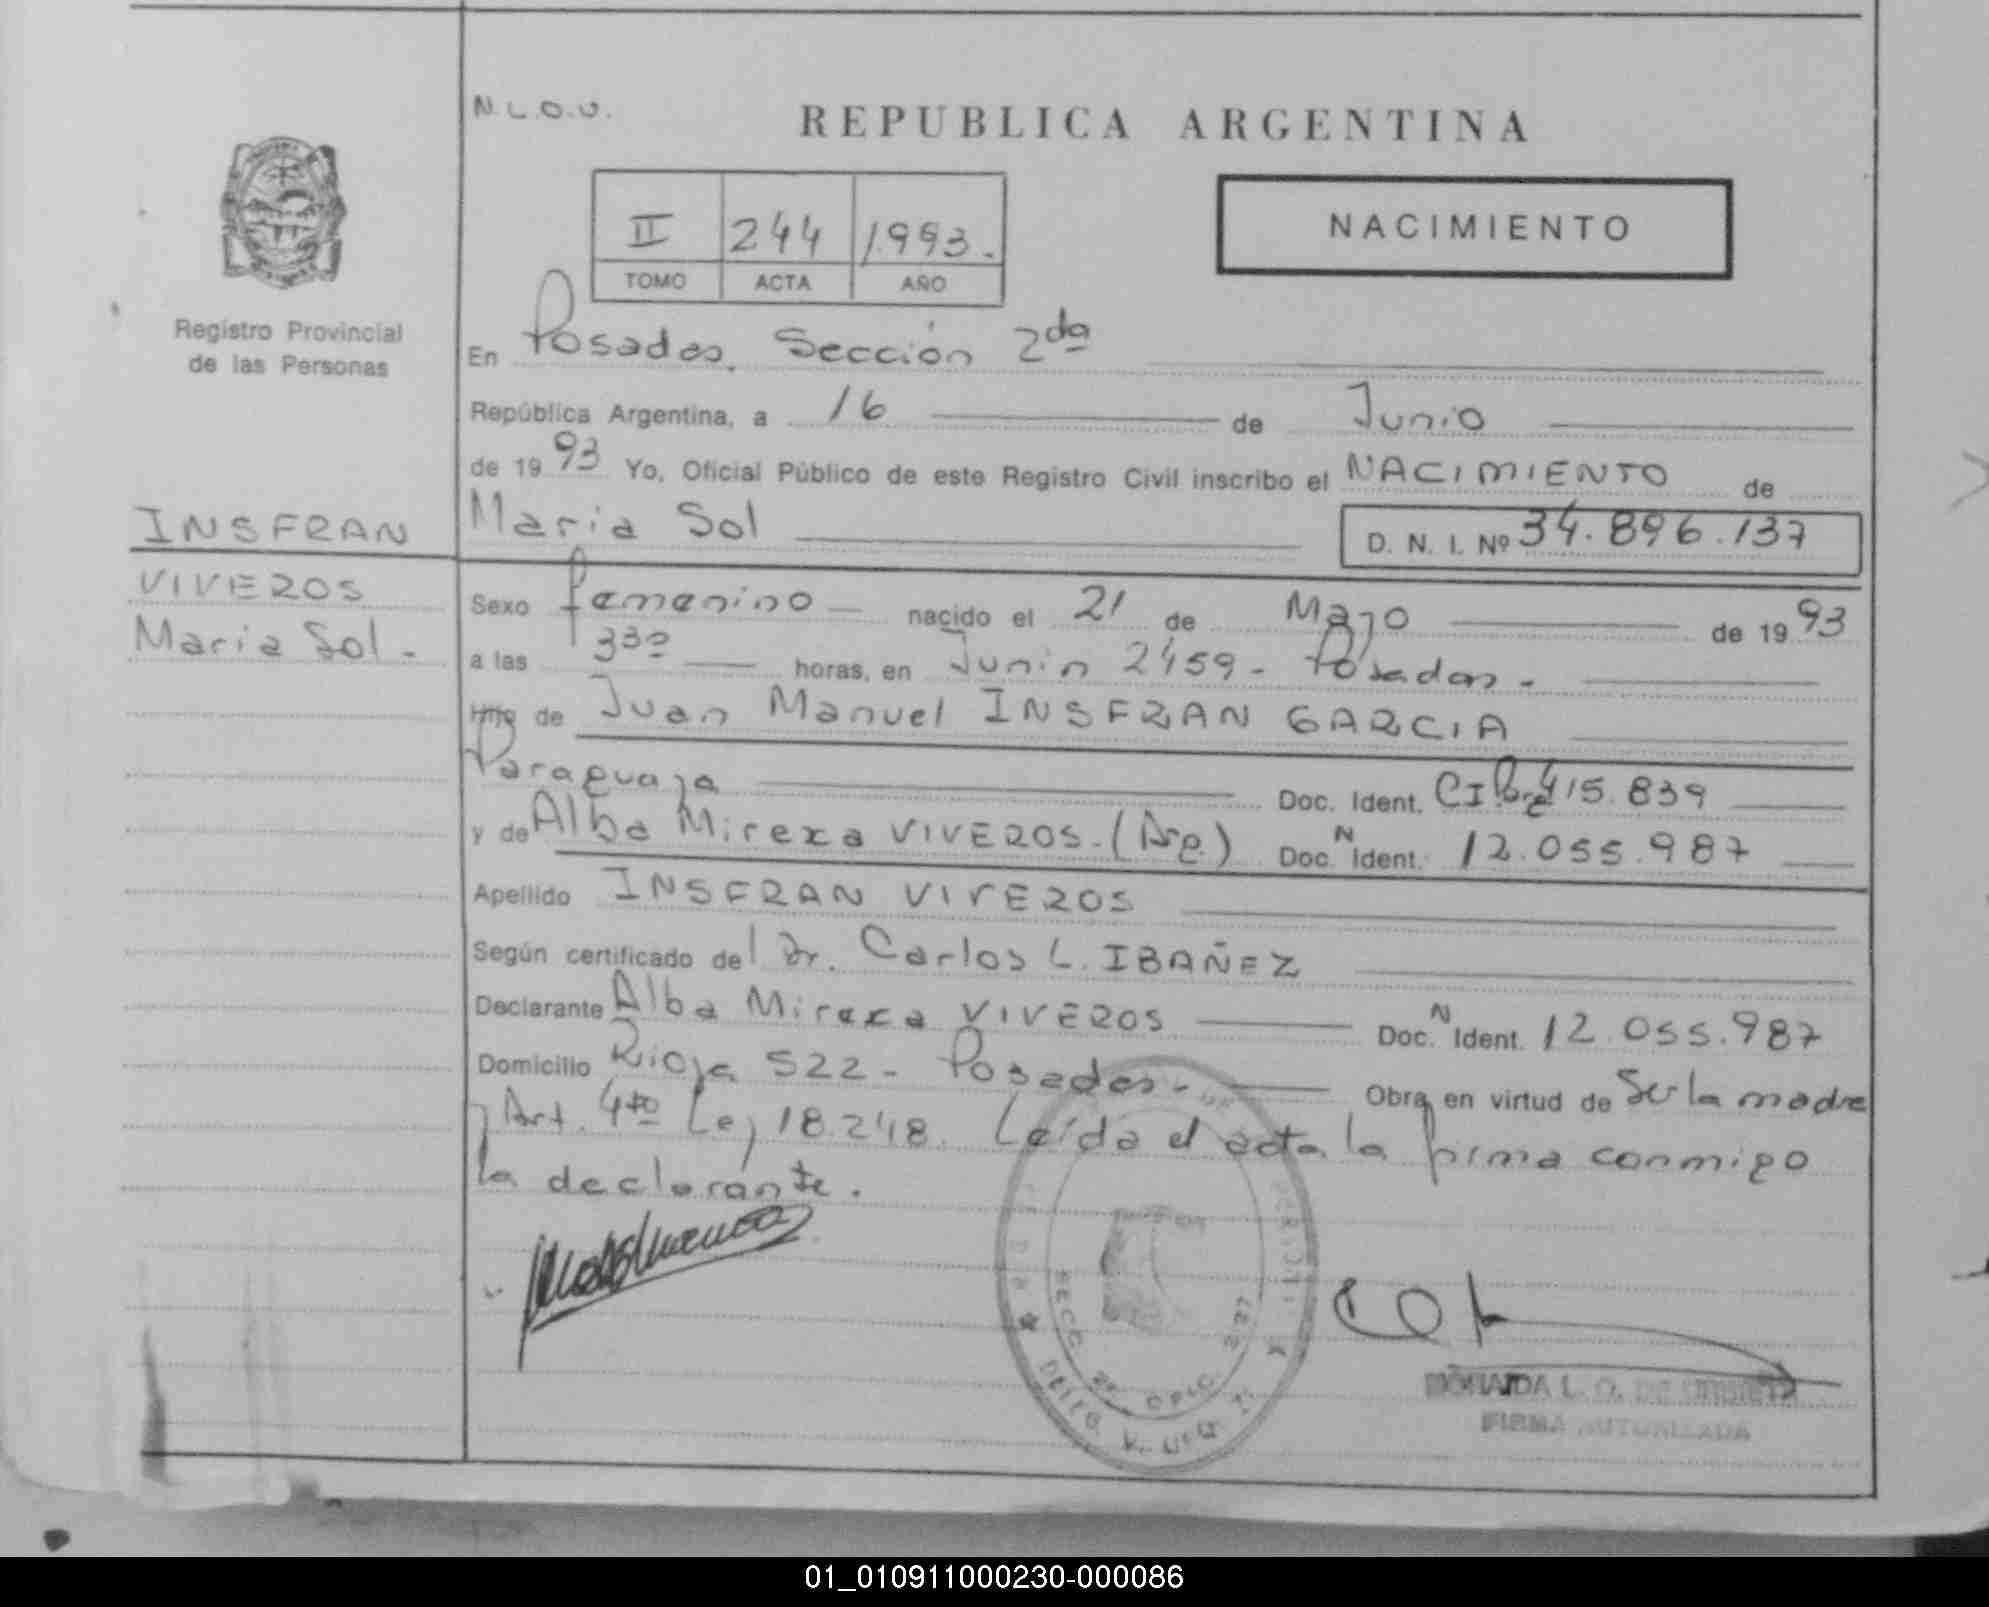 N.L.O.V.
REPUBLICA ARGENTINA
II 244 1.993.
TOMO ACTA AÑO
NACIMIENTO
Registro Provincial
de las Personas
En Posadas, Sección 2da
República Argentina, a 16 de Junio
de 1993 Yo, Oficial Público de este Registro Civil inscribo el NACIMIENTO de
INSFRAN
VIVEROS
Maria Sol.-
Maria Sol D. N. I. Nº 34.896.137
Sexo femenino nacido el 21 de Mayo de 1993
a las 3³⁰ horas, en Junin 2459- Posadas.-
Hijo de Juan Manuel INSFRAN GARCIA
Paraguaya Doc. Ident. CI 415.839
y de Alba Mirexa VIVEROS.(Arg.) Doc. N Ident. 12.055.987
Apellido INSFRAN VIVEROS
Según certificado del Dr. Carlos L. IBAÑEZ
Declarante Alba Mirexa VIVEROS Doc. N Ident. 12.055.987
Domicilio Rioja 522- Posadas.- Obra en virtud de Ser la madre
y Art. 4to Ley 18.248. Leída el acta la firma conmigo
la declarante.
SECC. 2ª OFIC.
FIRMA AUTORIZADA
01_010911000230-000086